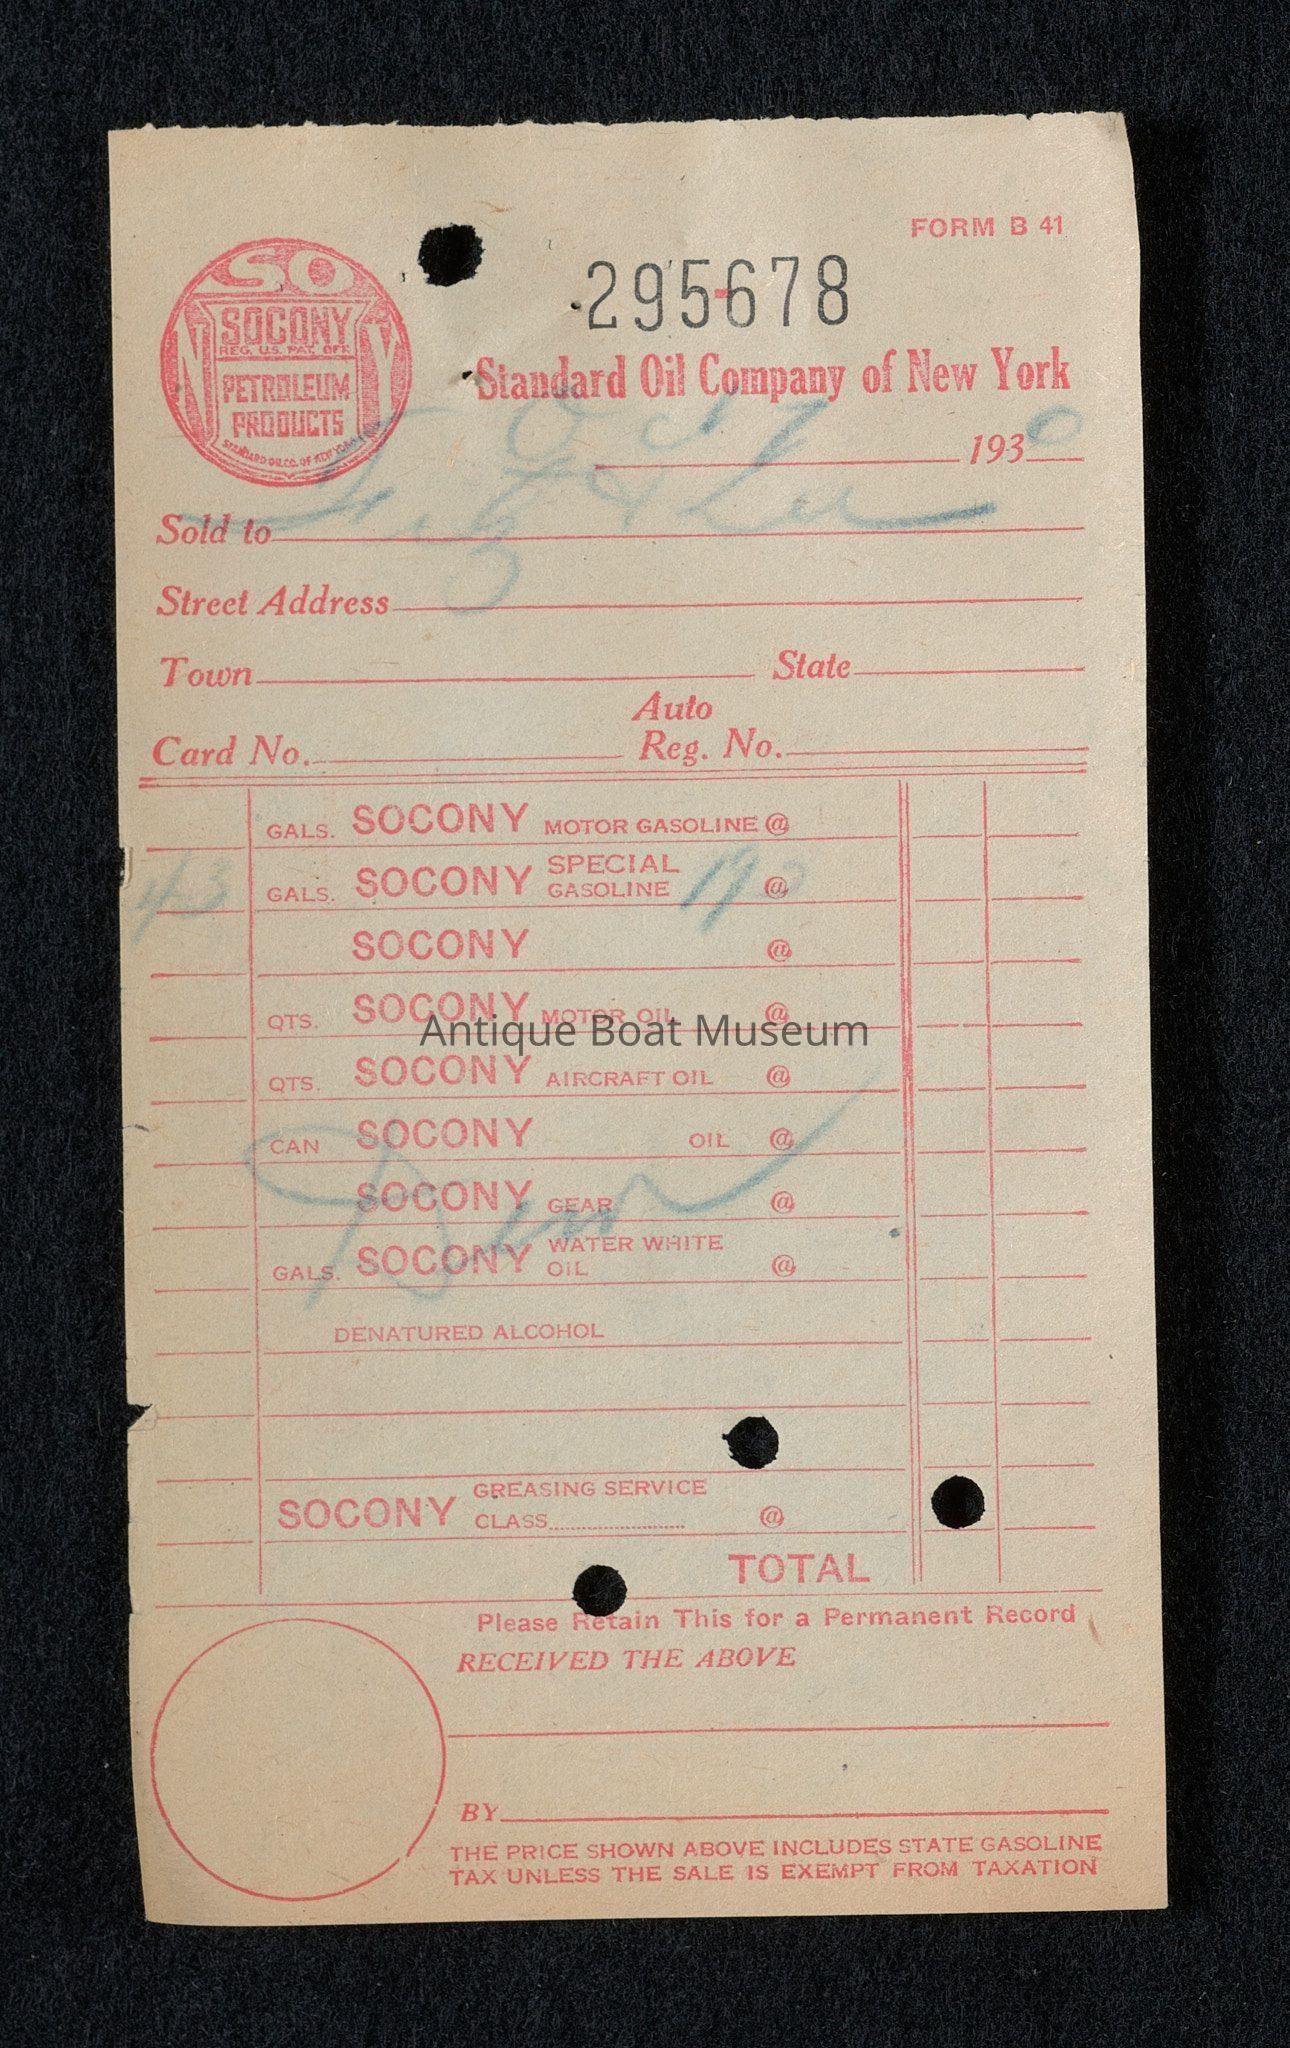 FORM B 41
SO
SOCONY
REG. U.S. PAT. OFF.
PETROLEUM
PRODUCTS
STANDARD OIL CO. OF NEW YORK
NY
295678
Standard Oil Company of New York
Oct 7 1930
Sold to
Street Address
Town State
Auto
Card No. Reg. No.
GALS. SOCONY MOTOR GASOLINE @
43 GALS. SOCONY SPECIAL GASOLINE @
SOCONY @
QTS. SOCONY MOTOR OIL @
Antique Boat Museum
QTS. SOCONY AIRCRAFT OIL @
CAN SOCONY OIL @
SOCONY GEAR @
GALS. SOCONY WATER WHITE OIL @
DENATURED ALCOHOL
SOCONY GREASING SERVICE
CLASS @
TOTAL
Please Retain This for a Permanent Record
RECEIVED THE ABOVE
BY
THE PRICE SHOWN ABOVE INCLUDES STATE GASOLINE
TAX UNLESS THE SALE IS EXEMPT FROM TAXATION